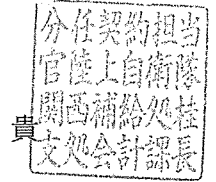 分任契約担当
官陸上自衛隊
関西補給処桂
支処会計課長
貴